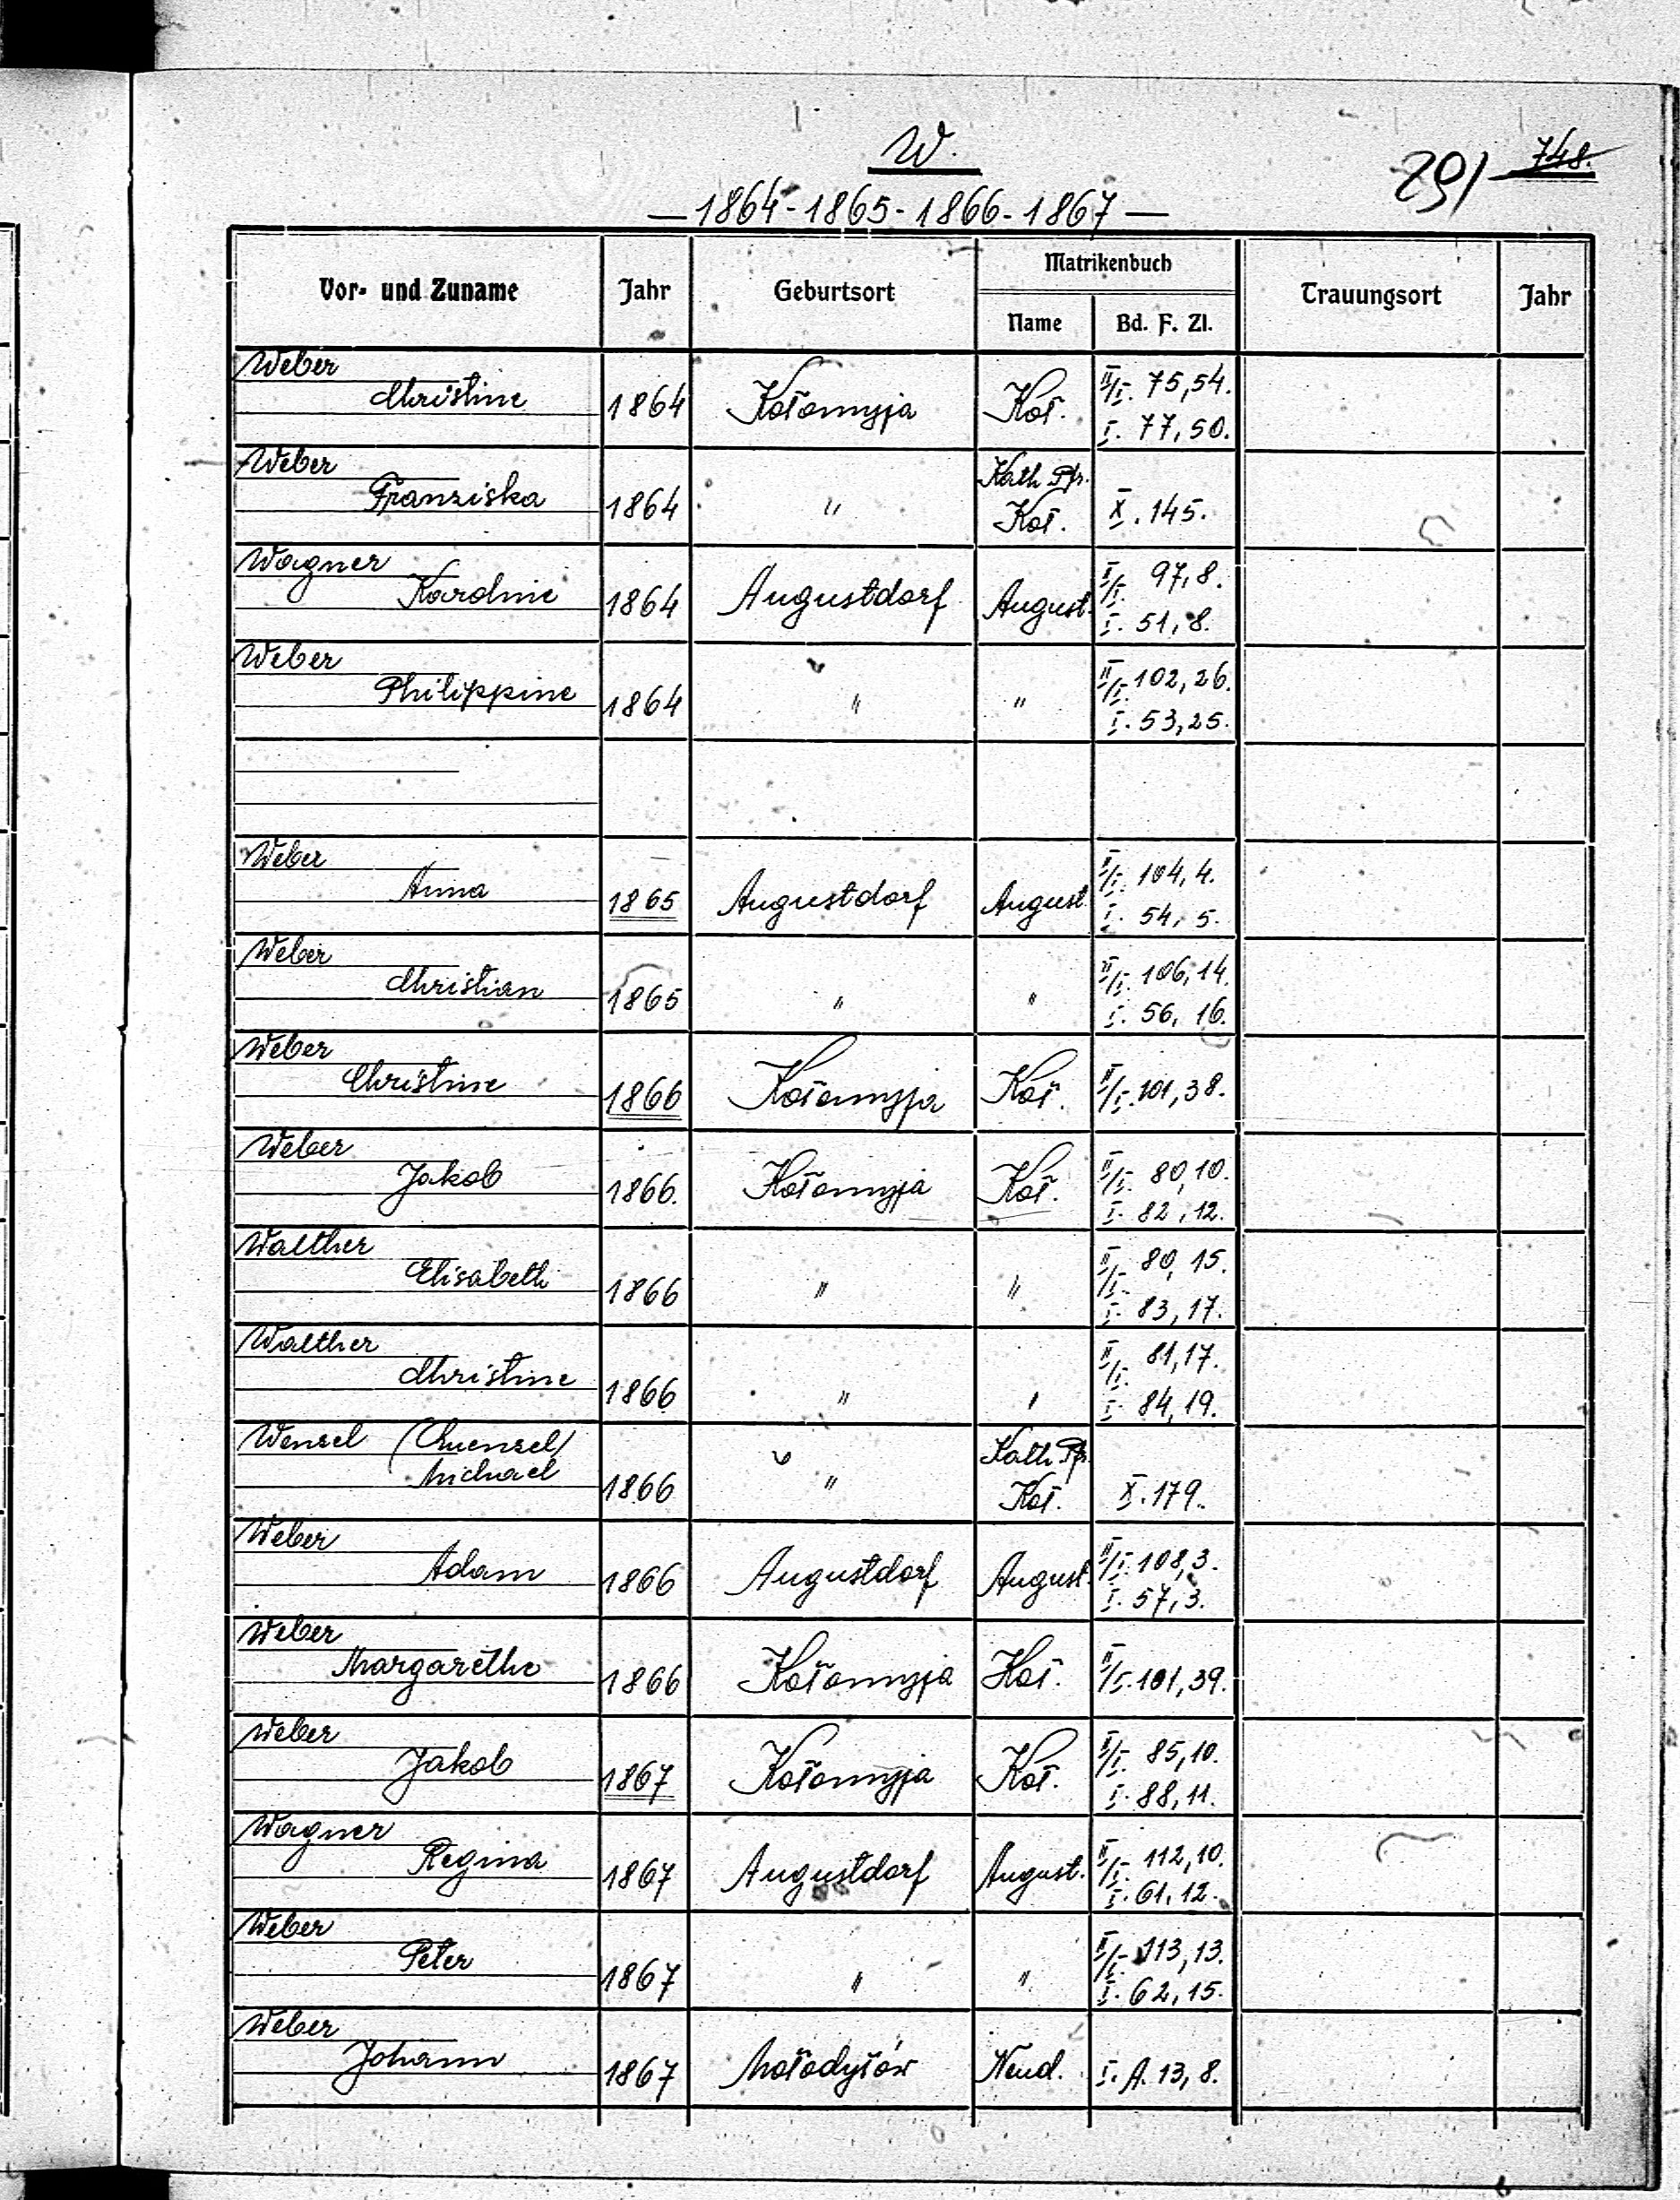 W.
291 748.
—1864-1865-1866-1867—
Vor- und Zuname Jahr Geburtsort Matrikenbuch Trauungsort Jahr
Name Bd. F. Zl.
Weber II/I. 75,54.
Christine 1864 Kołomyja Koł. I. 77,50.
Weber Kath Pfr.
Franziska 1864 " Koł. X. 145.
Wagner II/I. 97,8.
Karoline 1864 Augustdorf August. I. 51,8.
Weber II/I. 102,26.
Philippine 1864 " " I. 53,25.
Weber II/I. 104,4.
Anna 1865 Augustdorf August. I. 54,5.
Weber II/I. 106,14.
Christian 1865 " " I. 56,16.
Weber
Christine 1866 Kołomyja Koł. II/I. 101,38.
Weber II/I. 80,10.
Jakob 1866. Kołomyja Koł. I. 82,12.
Walther II/I. 80,15.
Elisabeth 1866 " " I. 83,17.
Walther II/I. 81,17.
Christine 1866 " " I. 84,19.
Wenzel (Chuenzel/ Kath Pfr.
Michael 1866 " Koł. X. 179.
Weber II/I. 108,3.
Adam 1866 Augustdorf August. I. 57,3.
Weber
Margarethe 1866 Kołomyja Koł. II/I. 101,39.
Weber II/I. 85,10.
Jakob 1867 Kołomyja Koł. I. 88,11.
Wagner II/I. 112,10.
Regina 1867 Augustdorf August. I. 61,12.
Weber II/I. 113,13.
Peter 1867 " " I. 62,15.
Weber
Johann 1867 Mołodyłów Neud. I. A. 13,8.